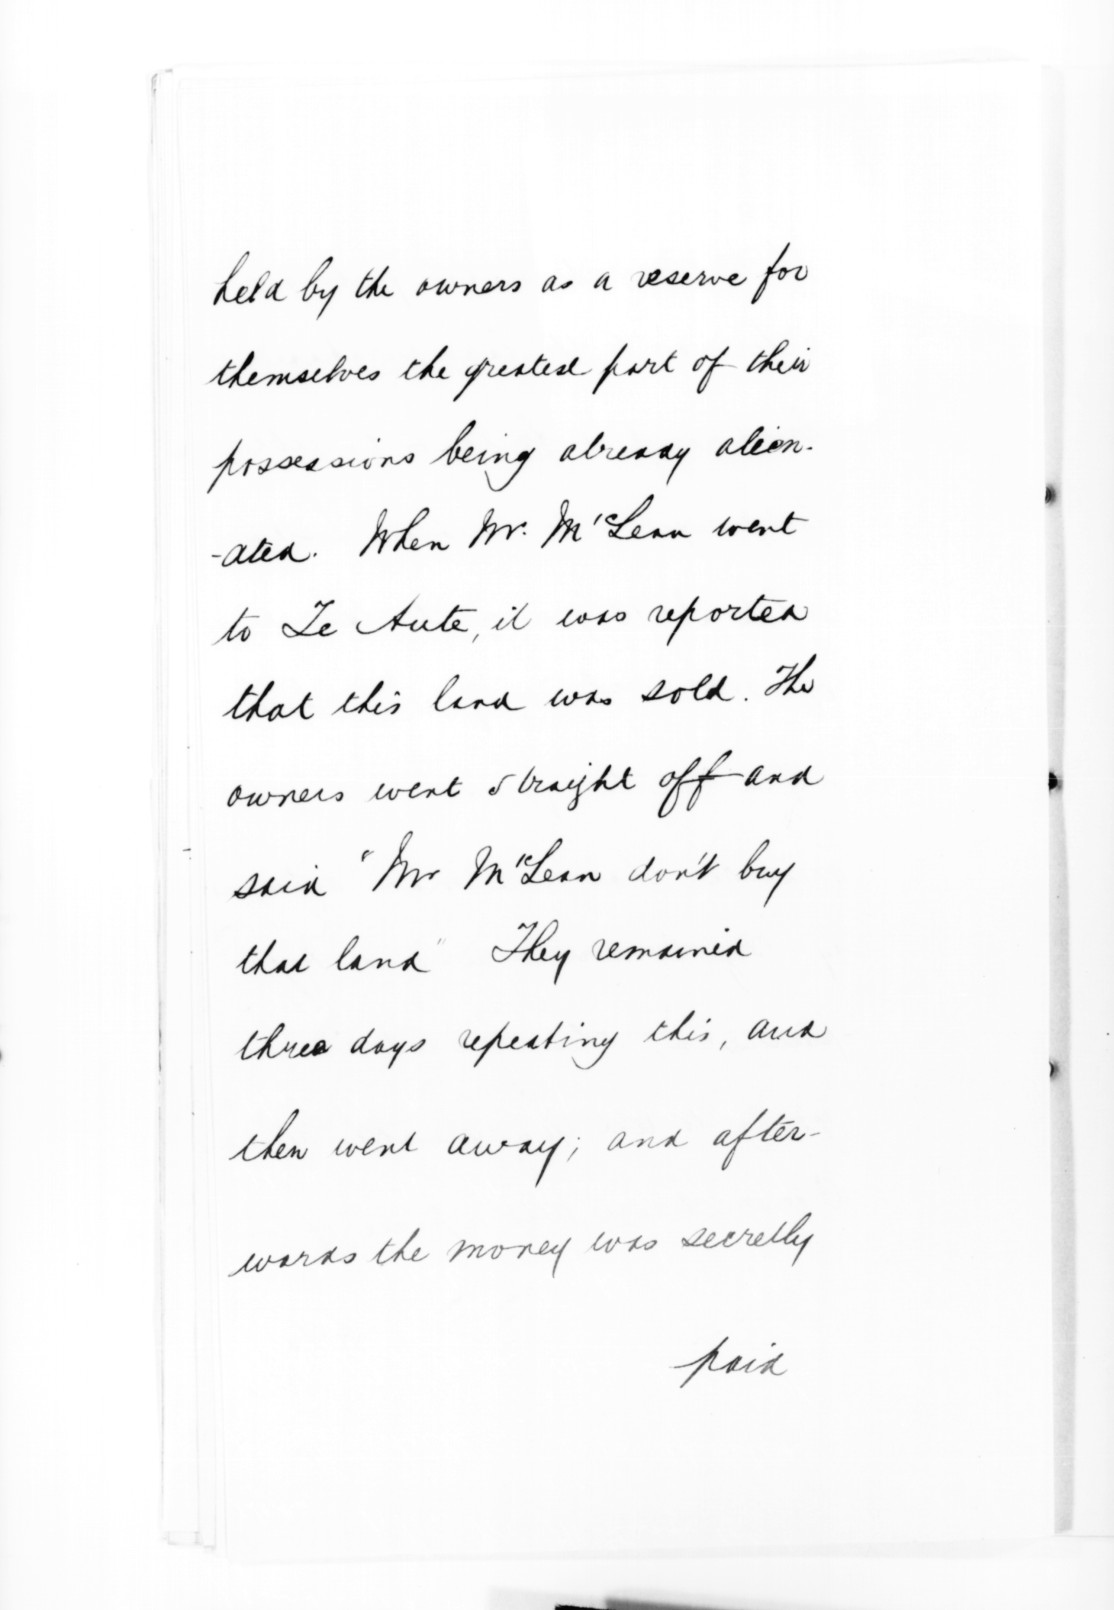 held by the owners as a reserve for
themselves the greatest part of their
possessions being already alien-
-ated. When Mr. McLean went
to Te Aute, it was reported
that this land was sold. The
owners went straight off and
said "Mr McLean don't buy
that land" They remained
three days repeating this, and
then went away; and after-
wards the money was secretly
paid